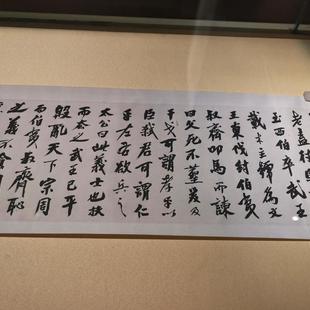 盍往
至西伯卒武王
載木主號為文
王東伐紂伯夷
叔齊叩馬而諫
曰父死不葬爰及
干戈可謂孝乎以
臣弒君可謂仁
乎左右欲兵之
太公曰此義士也扶
而去之武王已平
殷亂天下宗周
而伯夷叔齊恥
之義不食